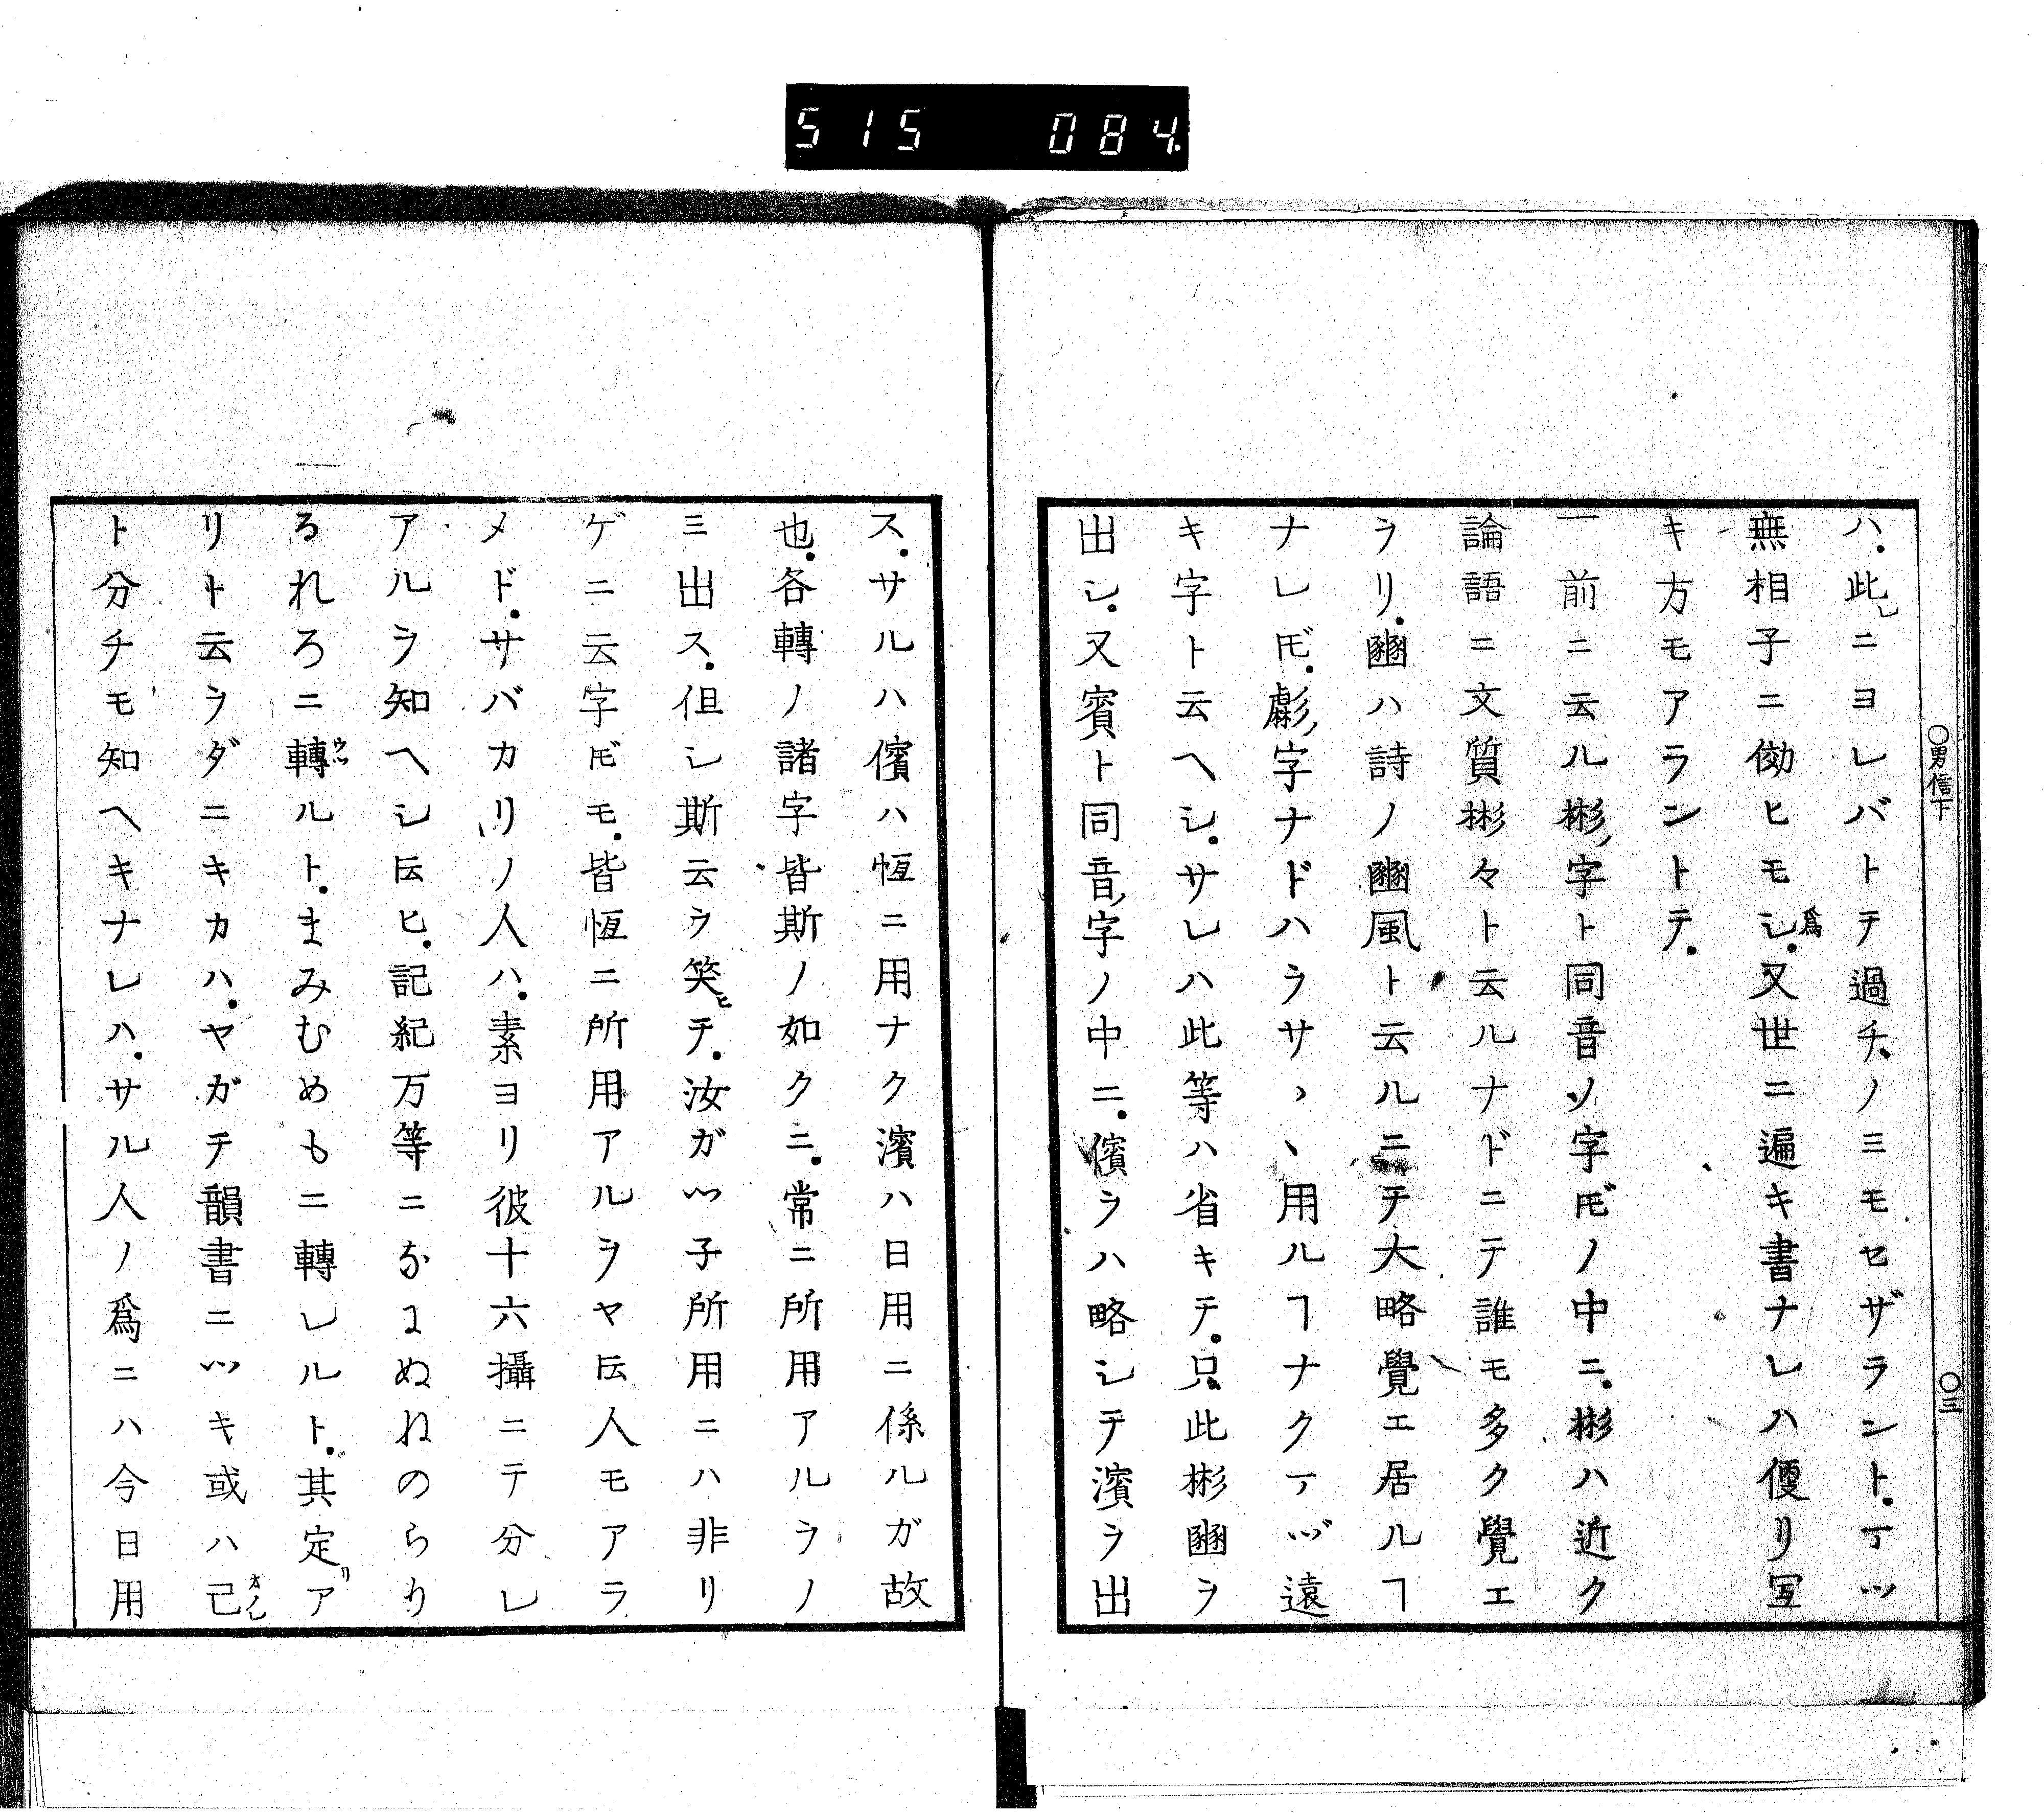 515 084
○男信下 ○三
ハ.此レニヨレバトテ過チ.ノミモセザラント.ㄒツ
無相子ニ傚ヒモシ.爲又世ニ遍キ書ナレハ便リ冝
キ方モアラントテ.
一前ニ云ル彬字ト同音ソ字𪜈ノ中ニ.彬ハ近ク
論語ニ文質彬々ト云ルナドニテ誰モ多ク覺エ
ヲリ.豳ハ詩ノ豳風ト云ルニテ大略覺エ居ルヿ
ナレ𪜈.字ナドハラサヽヽ用ルヿナクㄒヅ遠
キ字ト云ヘシ.サレハ此等ハ省キテ.只此彬豳ヲ
出シ.又賓ト同音字ノ中ニ.儐ヲハ略シテ濱ヲ出
ス.サルハ儐ハ恆ニ用ナク濱ハ日用ニ係ルガ故
也.各轉ノ諸字皆斯ノ如クニ.常ニ所用アルヲノ
ミ出ス.但シ斯云ヲ笑ヒテ.汝ガツ子所用ニハ非リ
ゲニ云字𪜈モ.皆恆ニ所用アルヲヤ𫝂人モアラ
メド.サバカリノ人ハ.素ヨリ彼十六攝ニテ分レ
アルヲ知ヘシ𫝂ヒ.記紀万等ニなにぬねのらり
るれろニ轉ウツルト.まみむめもニ轉レルト.其定リア
リト云ヲダニキカハ.ヤガテ韻書ニツキ或ハ己オノレ
ト分チモ知ヘキナレハ.サル人ノ爲ニハ今日用